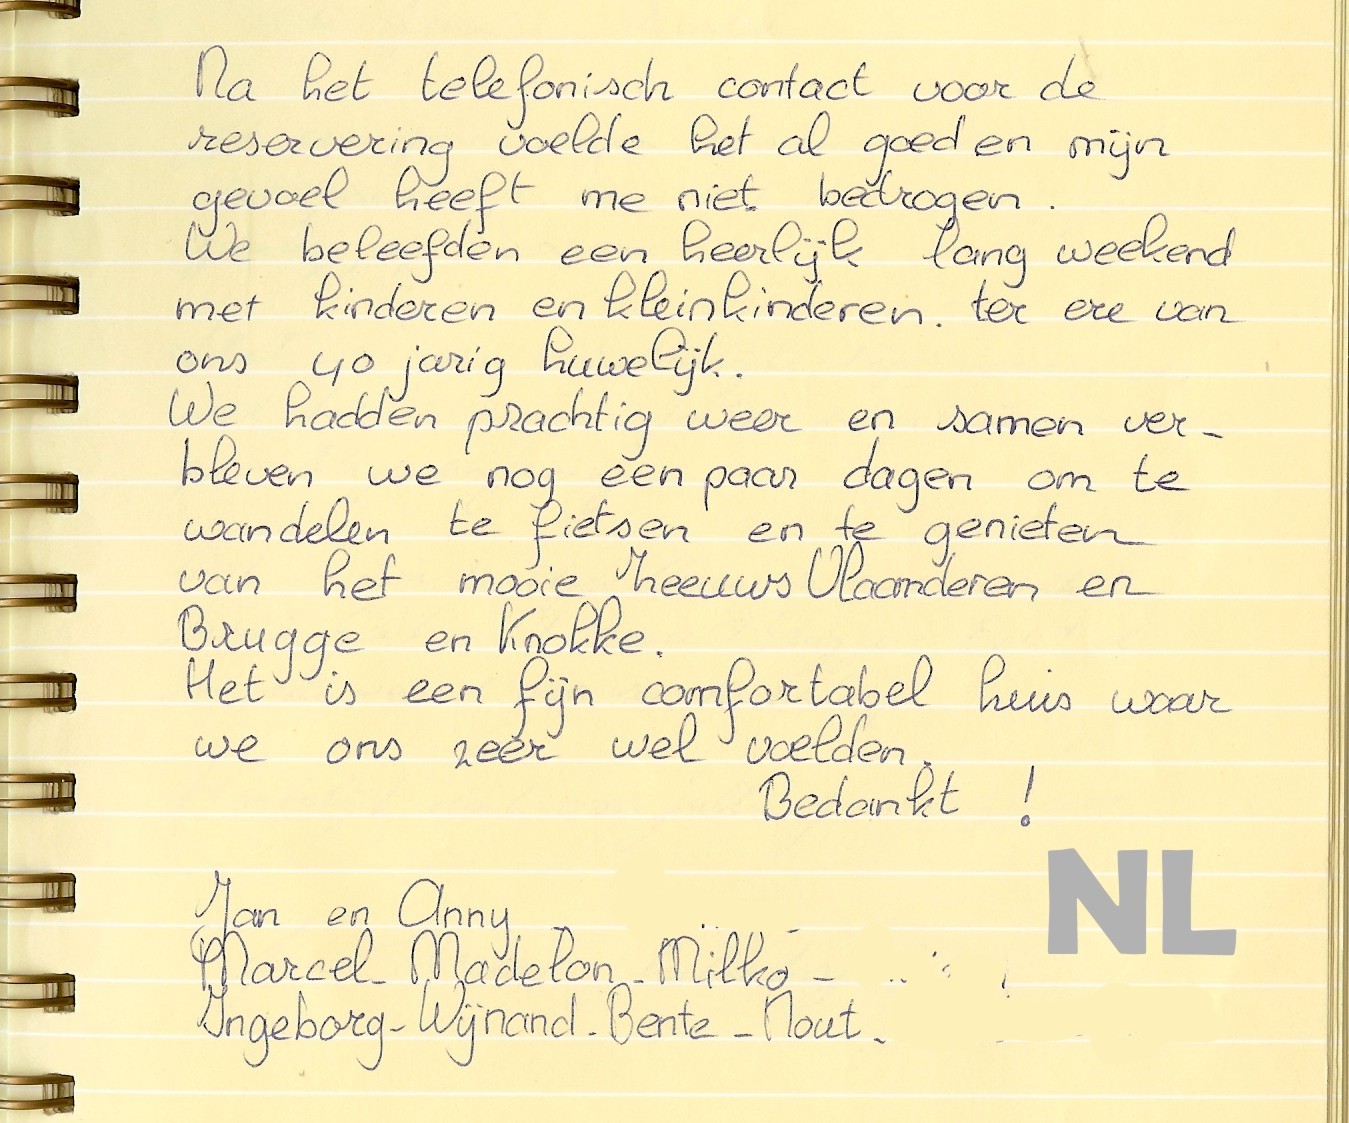 Na het telefonisch contact voor de
reservering voelde het al goed en mijn
gevoel heeft me niet bedrogen.
We beleefden een heerlijk lang weekend
met kinderen en kleinkinderen. ter ere van
ons 40 jarig huwelijk.
We hadden prachtig weer en samen ver-
bleven we nog een paar dagen om te
wandelen te fietsen en te genieten
van het mooie Zeeuws Vlaanderen en
Brugge en Knokke.
Het is een fijn comfortabel huis waar
we ons zeer wel voelden.
Bedankt !
NL
Jan en Anny
Marcel - Madelon - Milko -
Ingeborg - Wijnand - Bente - Nout.